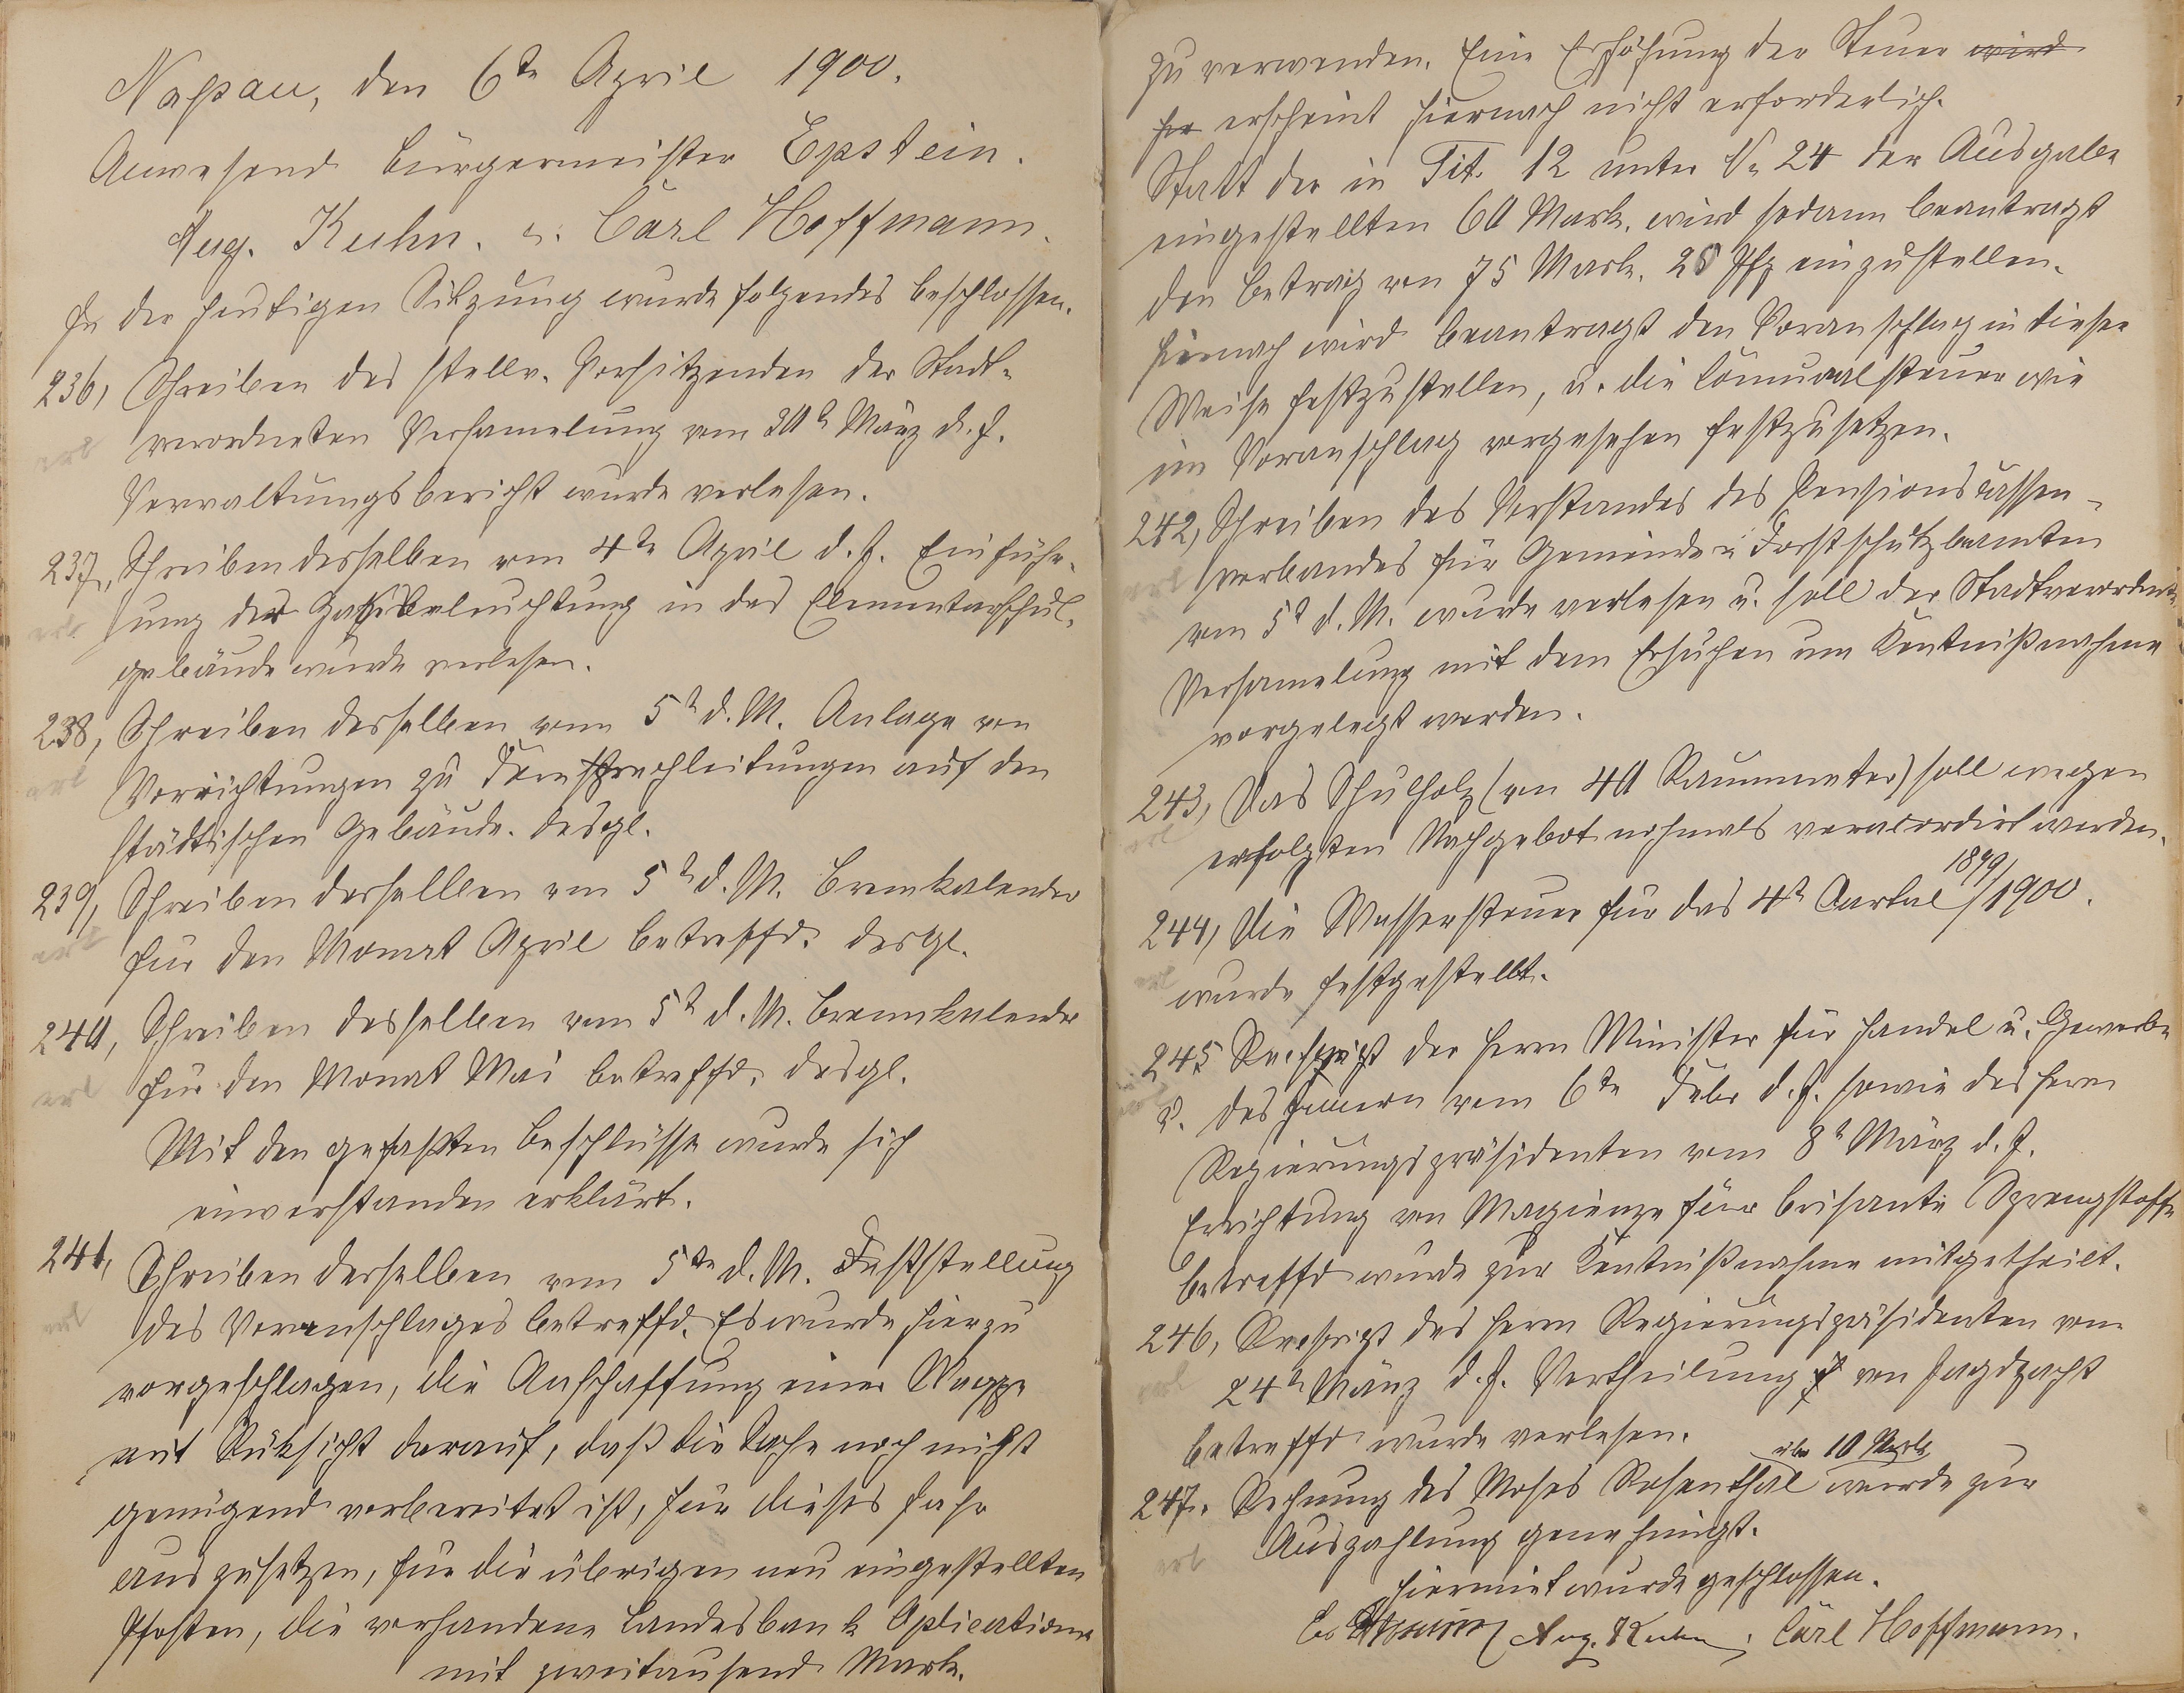 Naßau, den 6te April 1900.
Anwesend Bürgermeister Epstein.
Aug. Kuhn. u. Carl Hoffmann.
In der heutigen Sitzung wurde folgendes beschlossen.
236, Schreiben des stellv. Vorsitzenden der Stadt-
erl
verordneten Versamelung vom 30t März d. J.
Verwaltungsbericht wurde verlesen.
237, Schreiben desselben vom 4te April d. J. Einführ-
erl
ung der Gasbeleuchtung in das Elementarschul-
gebäude wurde verlesen.
238, Schreiben desselben vom 5t d. M. Anlage von
erl
Vorrichtungen zu Fernsprechleitungen auf den
städtischen Gebäude. desgl.
239, Schreiben desselben vom 5t d. M. Brennkalender
erl
für den Monat April betreffd. desgl.
240, Schreiben desselben vom 5t d. M. Brennkalender
erl
für den Monat Mai betreffd. desgl.
Mit den gefaßten Beschlüsse wurde sich
einverstanden erklärt.
241, Schreiben desselben vom 5te d. M. Feststellung
erl
des Voranschlages betreffd. Es wurde hierzu
vorgeschlagen, die Anschaffung einer Wagge
mit Rüksicht darauf, daß die Sache noch nicht
genügend vorbereitet ist, für dieses Jahr
auszusetzen, für die übrigen neu eingestellten
Posten, die vorhandene Landesbank Oplicationen
mit zweitausend Mark.
zu verwenden. Eine Erhöhung der Steuer wird
erscheint hiernach nicht erforderlich.
Statt der in Tit. 12 unter No 24 der Ausgabe
eingestellten 60 Mark. wird sodann beantragt
den Betrag von 75 Mark. 20 Pfg einzustellen.
Hiernach wird beantragt den Voranschlag in dieser
Weise festzustellen, u. die Comunalsteuer wie
im Voranschlag vorgesehen festzusetzen.
242, Schreiben des Vorstandes des Pensionscassen-
erl
verbandes für Gemeinde u Forstschutzbeamten
vom 5t d. M. wurde verlesen u. soll der Stadtverordnete
Versamelung mit dem Ersuchen um Kentnißnahme
vorgelegt werden.
243, Das Schulholz (von 40 Raummeter) soll wegen
erl
erfolgten Nachgebot nochmals veracordirt werden.
244, Die Wassersteuer für das 4t Quartal 1899/1900.
erl
wurde festgestellt.
245 Rescript der Herrn Minister für Handel u. Gewerbe
u. des Innern vom 6te Febr d. J. sowie des Herrn
Regierungspräsidenten vom 8t März d. J.
Errichtung von Magienze für brisante Sprengstoffe
betreffd wurde zur Kentnißnahme mitgetheilt.
246, Rescript des Herrn Regierungspräsidenten vom
erl
24t März d. J. Vertheilung von Jagdpacht
betreffd wurde verlesen.
247. Rechnung des Moses Rosenthal über 10 Mark wurde zur
erl
Auszahlung genehmigt.
Hiermit wurde geschlossen.
Aug. Kuhn, Carl Hoffmann.